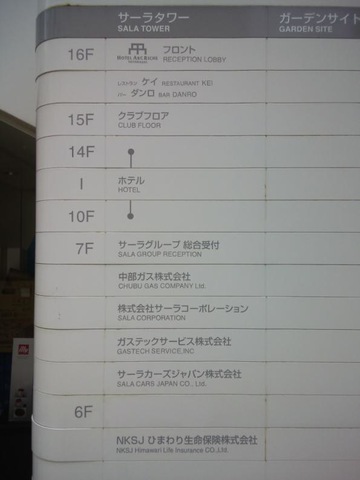 サーラタワー ガーデンサイト
SALA TOWER GARDEN SITE
16F HOTEL ARC RICHE フロント
RECEPTION LOBBY
レストラン ケイ RESTAURANT KEI
バー ダンロ BAR DANRO
15F クラブフロア
CLUB FLOOR
14F
ホテル
HOTEL
10F
7F サーラグループ 総合受付
SALA GROUP RECEPTION
中部ガス株式会社
CHUBU GAS COMPANY Ltd.
株式会社サーラコーポレーション
SALA CORPORATION
ガステックサービス株式会社
GASTECH SERVICE,INC
サーラカーズジャパン株式会社
SALA CARS JAPAN CO., Ltd.
6F
NKSJ ひまわり生命保険株式会社
NKSJ Himawari Life Insurance CO.,Ltd
illy